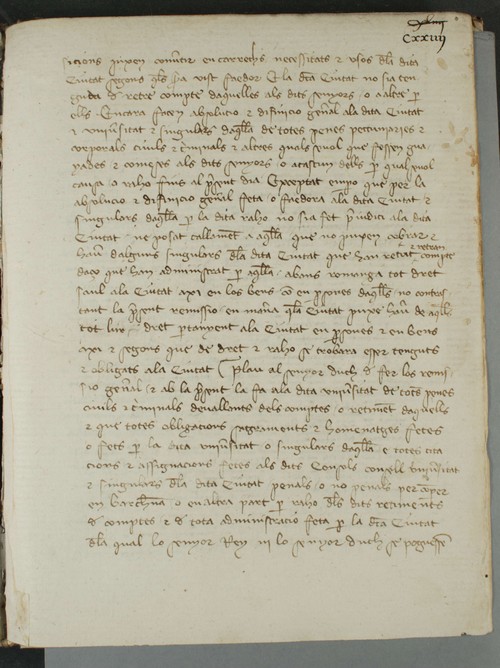 Cxxiiij
sicions puxen convertir en carrechs necessitats e usos dela dita
Ciutat segons quels sia vist faedor E la dita Ciutat no sia ten
guda de retre compte daquelles als dits senyors o a altre per
ells Encara facen absolucio e difinicio general ala dita Ciutat
e universitat e singulars daquella de totes penes pecuniaries e
corporals civils e criminals e altres quals sevol que fossen gua
nades e comeses als dits senyors o a cascun dells per qual sevol
causa o raho fins al present dia Exceptat empero que per la
absolucio e difinicio general feta o faedora ala dita Ciutat e
singulars daquella per la dita raho no sia fet prejudici ala dita
Ciutat ne posat callament a aquella que no puxen cobrar e
haver dalguns singulars dela dita Ciutat que han retut e retran compte
daço que han administrat per aquella abans romanga tot dret
salvl ala Ciutat axi en los bens com en persones daquells no contras
tant la present remissio en manera quela Ciutat puxe haver de aquells
tot lur dret pertanyent ala Ciutat en persones e en bens
axi e segons que de dret e raho se trobara esser tenguts
e obligats ala Ciutat Plau al senyor duch de fer les remi
sio general e ab la present la fa ala dita universitat de totes penes
civils e criminals devallants dels comptes o retiment daquells
e que totes obligacions sagraments e homenatges fetes
o fets per la dita universitat o singulars daquella e totes cita
cions e assignacions fetes als dits Consols consell universitat
e singulars dela dita Ciutat penals o no penals per comper
en barchinona o en altra part per raho dels dits retiments
de comptes e de tota administracio feta per la dita Ciutat
dela qual lo senyor Rey ni lo senyor duch se poguessen